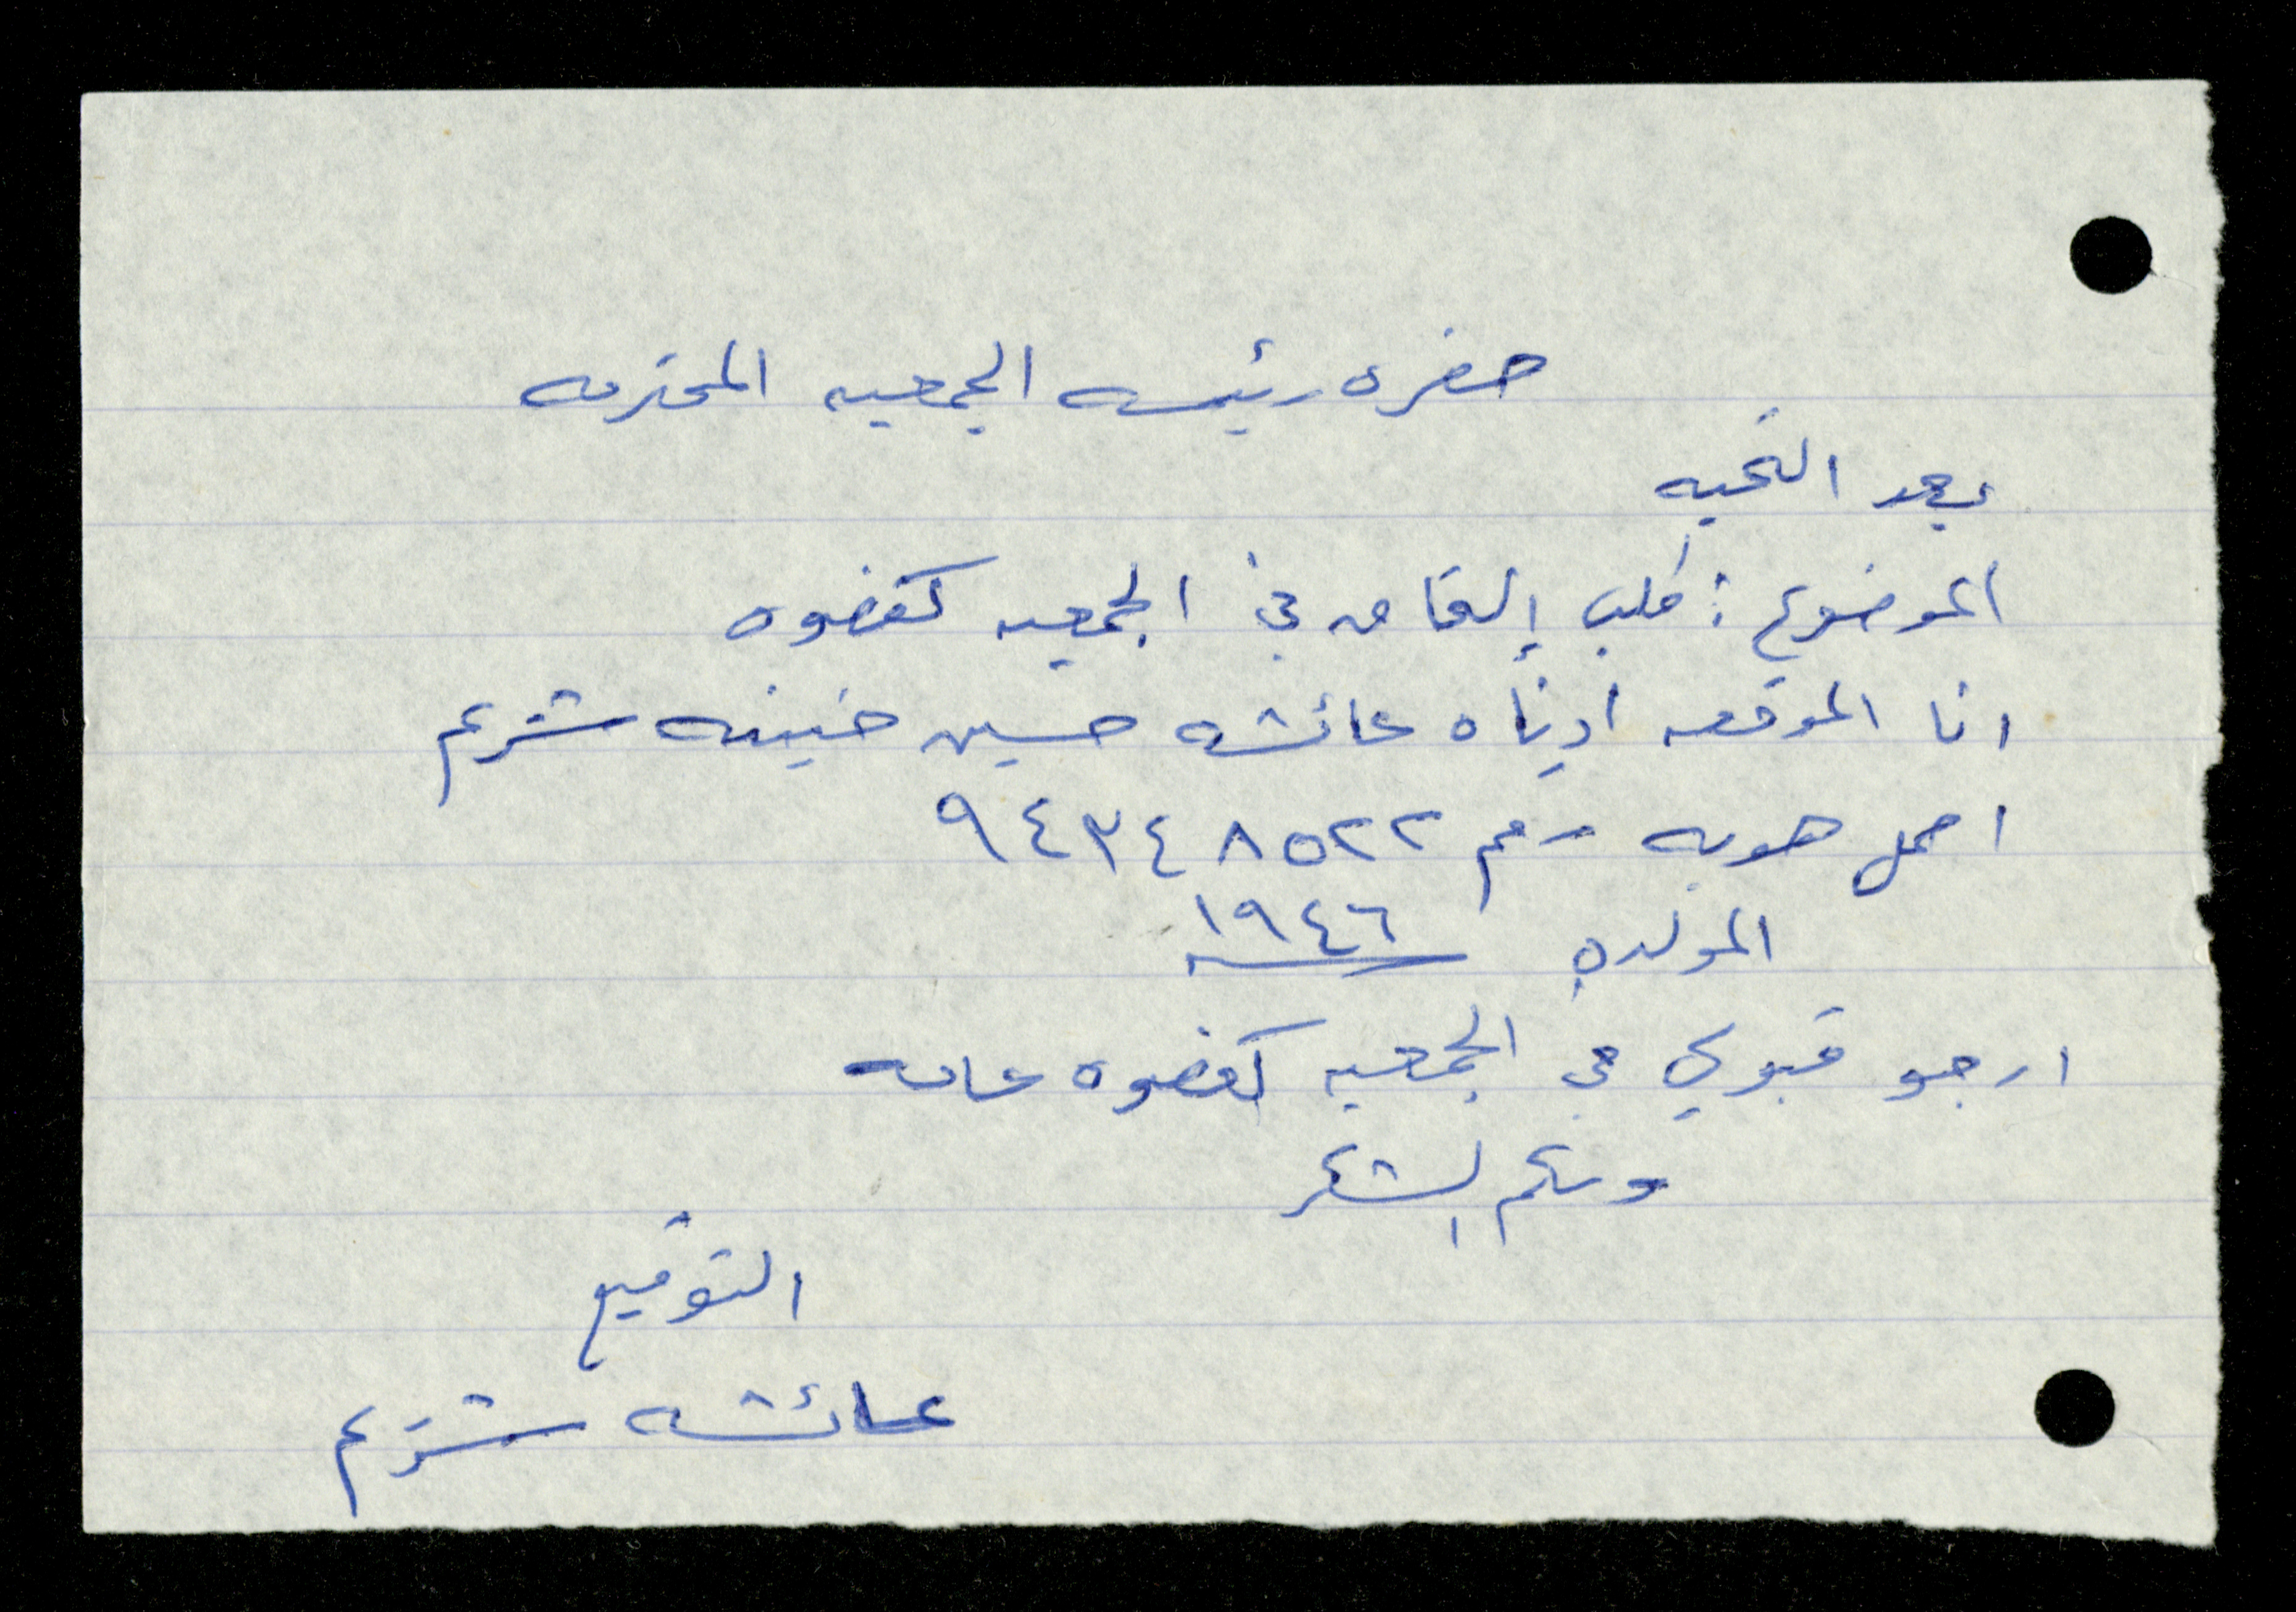 حضره رئيسه الجمعيه المحترمه
بعد التحيه
الموضوع : طلب إلتحاق في الجمعيه كعضوه
انا الموقعه ادناه عائشه حسين شريم
احمل هويه رقم ٩٤٣٤٨٥٢٢
المولده ١٩٤٦
ارجو قبولي في الجمعيه كعضوه عامه
ولكم الشكر
التوقيع
عائشه شريم